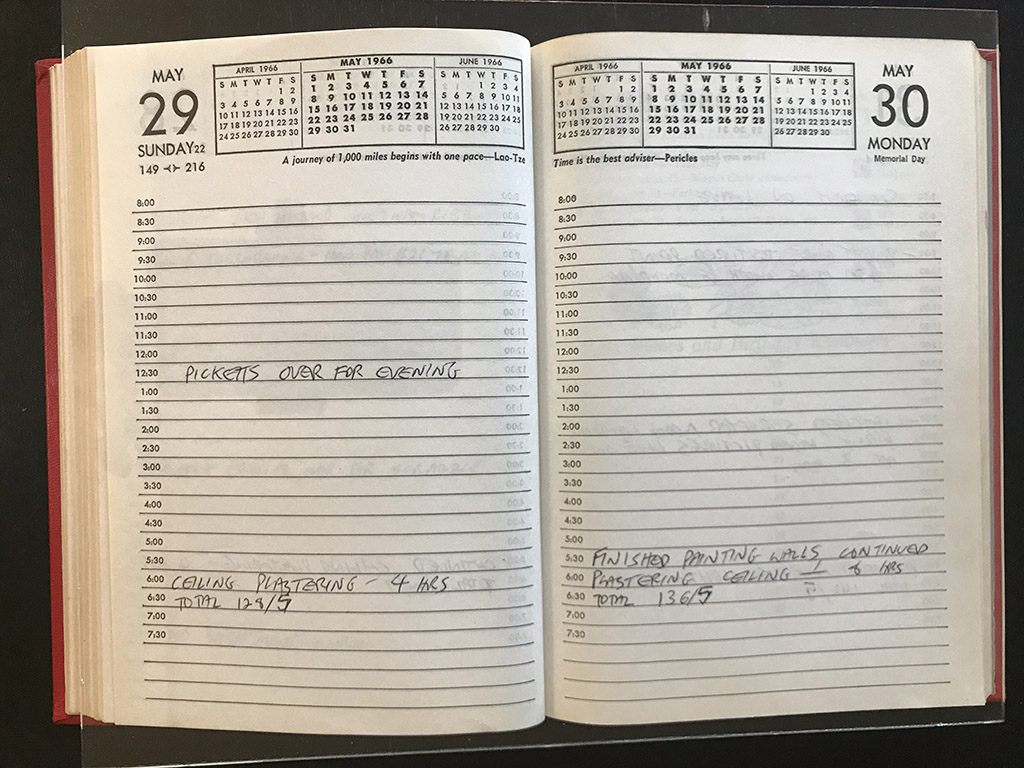 MAY
29
SUNDAY 22
149 216
APRIL 1966
S M T W T F S
1 2
3 4 5 6 7 8 9
10 11 12 13 14 15 16
17 18 19 20 21 22 23
24 25 26 27 28 29 30
MAY 1966
S M T W T F S
1 2 3 4 5 6 7
8 9 10 11 12 13 14
15 16 17 18 19 20 21
22 23 24 25 26 27 28
29 30 31
JUNE 1966
S M T W T F S
1 2 3 4
5 6 7 8 9 10 11
12 13 14 15 16 17 18
19 20 21 22 23 24 25
26 27 28 29 30
A journey of 1,000 miles begins with one pace—Lao-Tze
8:00
8:30
9:00
9:30
10:00
10:30
11:00
11:30
12:00
12:30 PICKETTS OVER FOR EVENING
1:00
1:30
2:00
2:30
3:00
3:30
4:00
4:30
5:00
5:30
6:00 CEILING PLASTERING - 4 HRS
6:30 TOTAL 128/5
7:00
7:30
APRIL 1966
S M T W T F S
1 2
3 4 5 6 7 8 9
10 11 12 13 14 15 16
17 18 19 20 21 22 23
24 25 26 27 28 29 30
MAY 1966
S M T W T F S
1 2 3 4 5 6 7
8 9 10 11 12 13 14
15 16 17 18 19 20 21
22 23 24 25 26 27 28
29 30 31
JUNE 1966
S M T W T F S
1 2 3 4
5 6 7 8 9 10 11
12 13 14 15 16 17 18
19 20 21 22 23 24 25
26 27 28 29 30
MAY
30
MONDAY
Memorial Day
Time is the best adviser—Pericles
8:00
8:30
9:00
9:30
10:00
10:30
11:00
11:30
12:00
12:30
1:00
1:30
2:00
2:30
3:00
3:30
4:00
4:30
5:00
5:30 FINISHED PAINTING WALLS CONTINUED
6:00 PLASTERING CEILING - 8 HRS
6:30 TOTAL 136/5
7:00
7:30